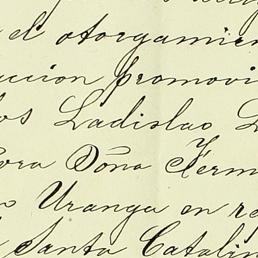 el otorgamien
ccion promovi
os Ladislao
ora Doña Ferm
Uranga en re
Santa Catalin